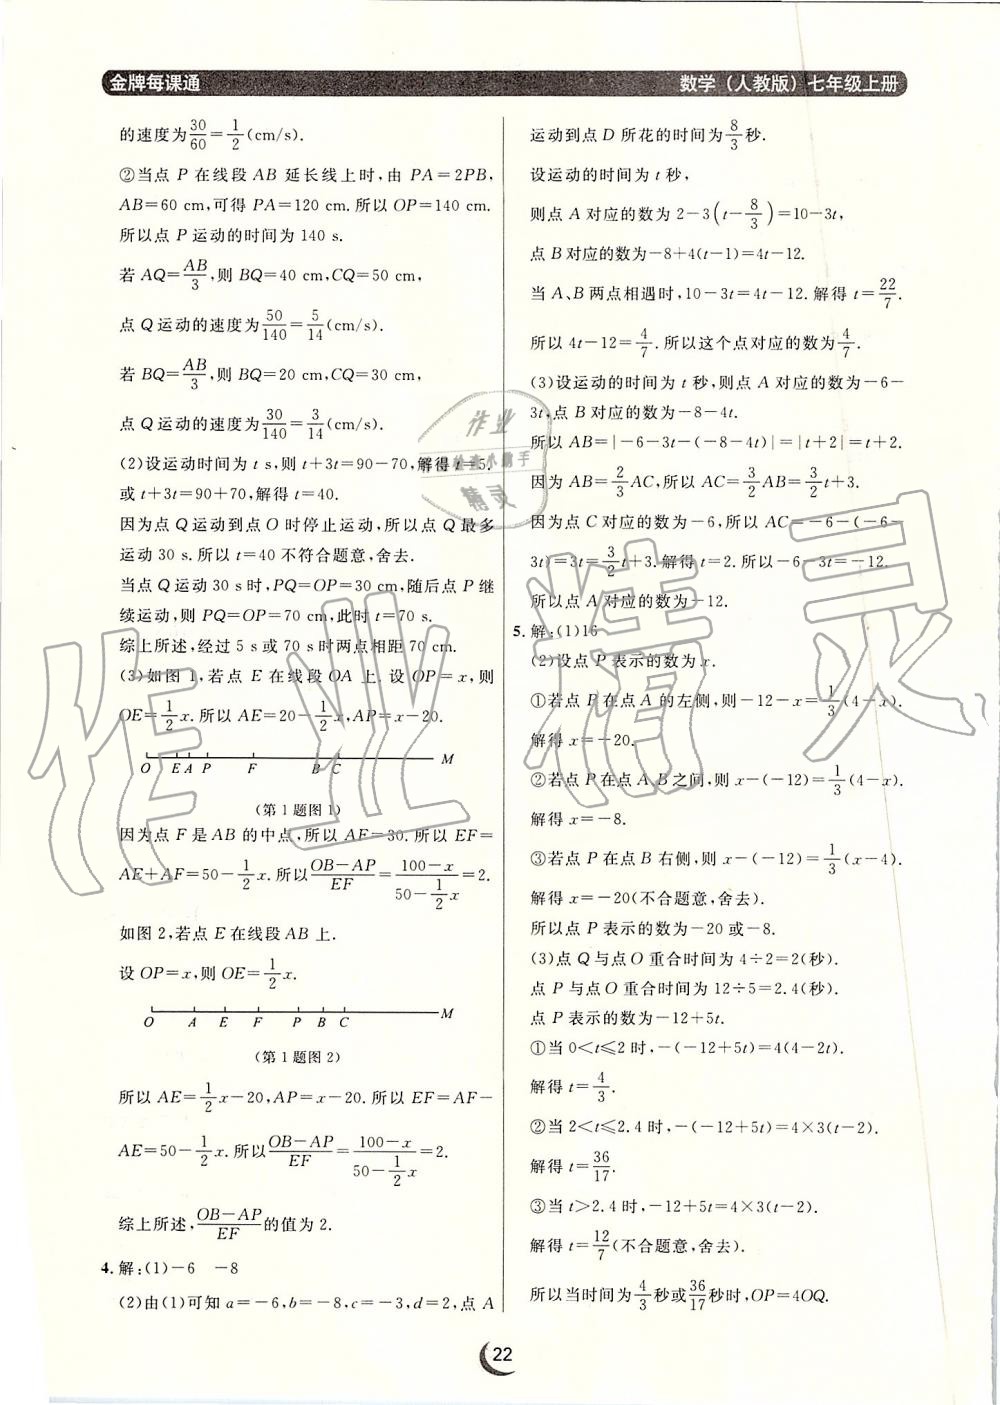 金牌每课通
数学（人教版）七年级上册
的速度为30/60=1/2(cm/s).
②当点 P 在线段 AB 延长线上时,由 PA=2PB,
AB=60 cm,可得 PA=120 cm.所以 OP=140 cm.
所以点 P 运动的时间为 140 s.
若 AQ=AB/3,则 BQ=40 cm,CQ=50 cm,
点 Q 运动的速度为50/140=5/14(cm/s).
若 BQ=AB/3,则 BQ=20 cm,CQ=30 cm,
点 Q 运动的速度为30/140=3/14(cm/s).
(2)设运动时间为 t s,则 t+3t=90-70,解得 t=5.
或 t+3t=90+70,解得 t=40.
因为点 Q 运动到点 O 时停止运动,所以点 Q 最多
运动 30 s.所以 t=40 不符合题意,舍去.
当点 Q 运动 30 s 时,PQ=OP=30 cm,随后点 P 继
续运动,则 PQ=OP=70 cm,此时 t=70 s.
综上所述,经过 5 s 或 70 s 时两点相距 70 cm.
(3)如图 1,若点 E 在线段 OA 上.设 OP=x,则
OE=1/2x.所以 AE=20-1/2x,AP=x-20.
O E A P F B C M
(第 1 题图 1)
因为点 F 是 AB 的中点,所以 AF=30.所以 EF=
AE+AF=50-1/2x.所以(OB-AP)/EF=(100-x)/(50-1/2x)=2.
如图 2,若点 E 在线段 AB 上.
设 OP=x,则 OE=1/2x.
O A E F P B C M
(第 1 题图 2)
所以 AE=1/2x-20,AP=x-20.所以 EF=AF-
AE=50-1/2x.所以(OB-AP)/EF=(100-x)/(50-1/2x)=2.
综上所述,(OB-AP)/EF的值为 2.
4.解:(1)-6 -8
(2)由(1)可知 a=-6,b=-8,c=-3,d=2,点 A
运动到点 D 所花的时间为8/3秒.
设运动的时间为 t 秒,
则点 A 对应的数为 2-3(t-8/3)=10-3t,
点 B 对应的数为-8+4(t-1)=4t-12.
当 A、B 两点相遇时,10-3t=4t-12.解得 t=22/7.
所以 4t-12=4/7.所以这个点对应的数为4/7.
(3)设运动的时间为 t 秒,则点 A 对应的数为-6-
3t,点 B 对应的数为-8-4t.
所以 AB=|-6-3t-(-8-4t)|=|t+2|=t+2.
因为 AB=2/3AC,所以 AC=3/2AB=3/2t+3.
因为点 C 对应的数为-6,所以 AC=-6-(-6-
3t)=3t=3/2t+3.解得 t=2.所以-6-3t=-12.
所以点 A 对应的数为-12.
5.解:(1)16
(2)设点 P 表示的数为 x.
①若点 P 在点 A 的左侧,则-12-x=1/3(4-x).
解得 x=-20.
②若点 P 在点 A、B 之间,则 x-(-12)=1/3(4-x).
解得 x=-8.
③若点 P 在点 B 右侧,则 x-(-12)=1/3(x-4).
解得 x=-20(不合题意,舍去).
所以点 P 表示的数为-20 或-8.
(3)点 Q 与点 O 重合时间为 4÷2=2(秒).
点 P 与点 O 重合时间为 12÷5=2.4(秒).
点 P 表示的数为-12+5t.
①当 0<t≤2 时,-(-12+5t)=4(4-2t).
解得 t=4/3.
②当 2<t≤2.4 时,-(-12+5t)=4×3(t-2).
解得 t=36/17.
③当 t>2.4 时,-12+5t=4×3(t-2).
解得 t=12/7(不合题意,舍去).
所以当时间为4/3秒或36/17秒时,OP=4OQ.
22
作业精灵